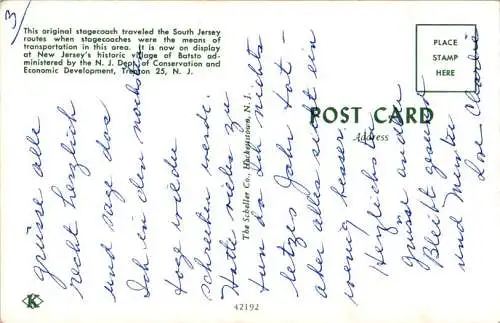 3)
This original stagecoach traveled the South Jersey
routes when stagecoaches were the means of
transportation in this area. It is now on display
at New Jersey's historic village of Batsto ad-
ministered by the N. J. Dept. of Conservation and
Economic Development, Trenton 25, N. J.
PLACE
STAMP
HERE
POST CARD
Address
The Scheller Co., Hackettstown, N. J.
K
42192
grüsse alle
recht herzlich
und sage das
Ich in den nächsten
tage wieder
schreiben werde.
Hatte vieles zu
tun da Ich nichts
letzes Jahr tat –
aber alles sieht ein
wenig besser.
Herzlichste
Grüsse an alle
Bleibt gesund
und Munter
Love Charlie